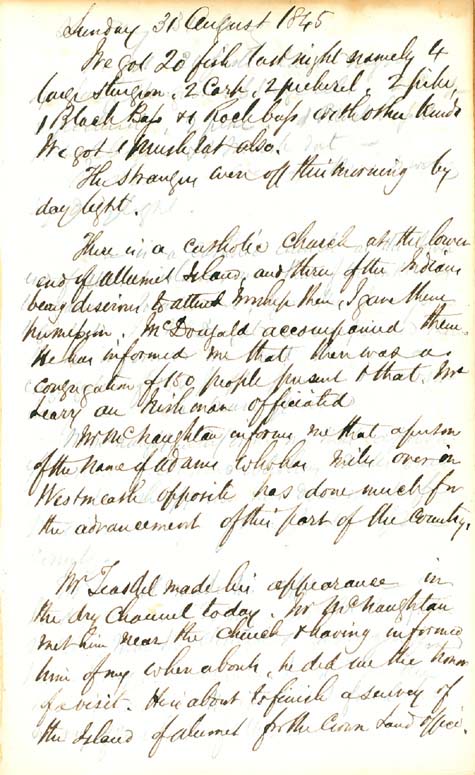 Sunday 31 August 1845
We got 20 fish last night namely 4
large Sturgeon, 2 Carp, 2 pickerel, 2 pike,
1 Black Bass & 1 Rock bass with other kinds
We got 1 Muskrat also.
The strangers were off this morning by
day light.
There is a catholic Church at the lower
end of Allumet Island, and three of the Indians
being desirous to attend Worship there, I gave them
permission. McDonald accompanied them.
He has informed me that there was a
congregation of 150 people present & that Mr
Leary an Irishman officiated
Mr McNaughtan informs me that a person
of the name of Adams who has Mills over in
Westmeath opposite has done much for
the advancement of this part of the Country.
Mr Teasdel made his appearance in
the dry Channel today. Mr McNaughtan
met him near the Church & having informed
him of my whereabouts, he did me the honor
of a visit. He is about to finish a survey of
the Island of Alumet for the Crown Land office.